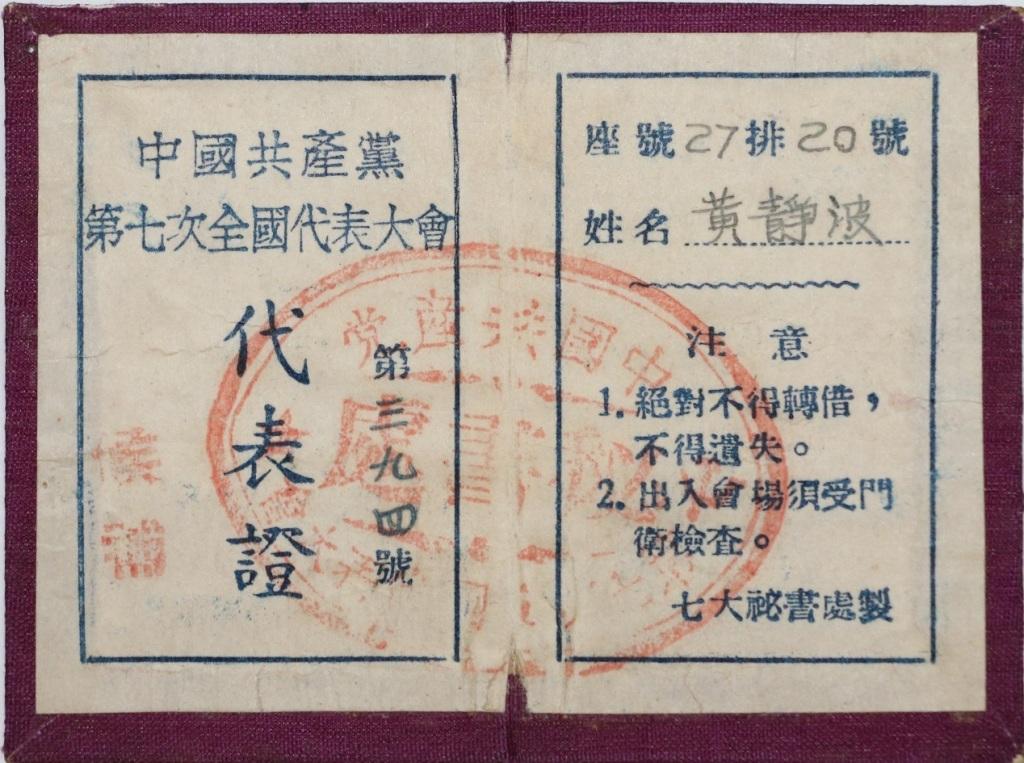 中國共產黨
第七次全國代表大會
代表證
第三九四號
座號27排20號
姓名 黄靜波
注意
1. 絕對不得轉借，
不得遺失。
2. 出入會場須受門
衛檢查。
七大祕書處製
中國共産党